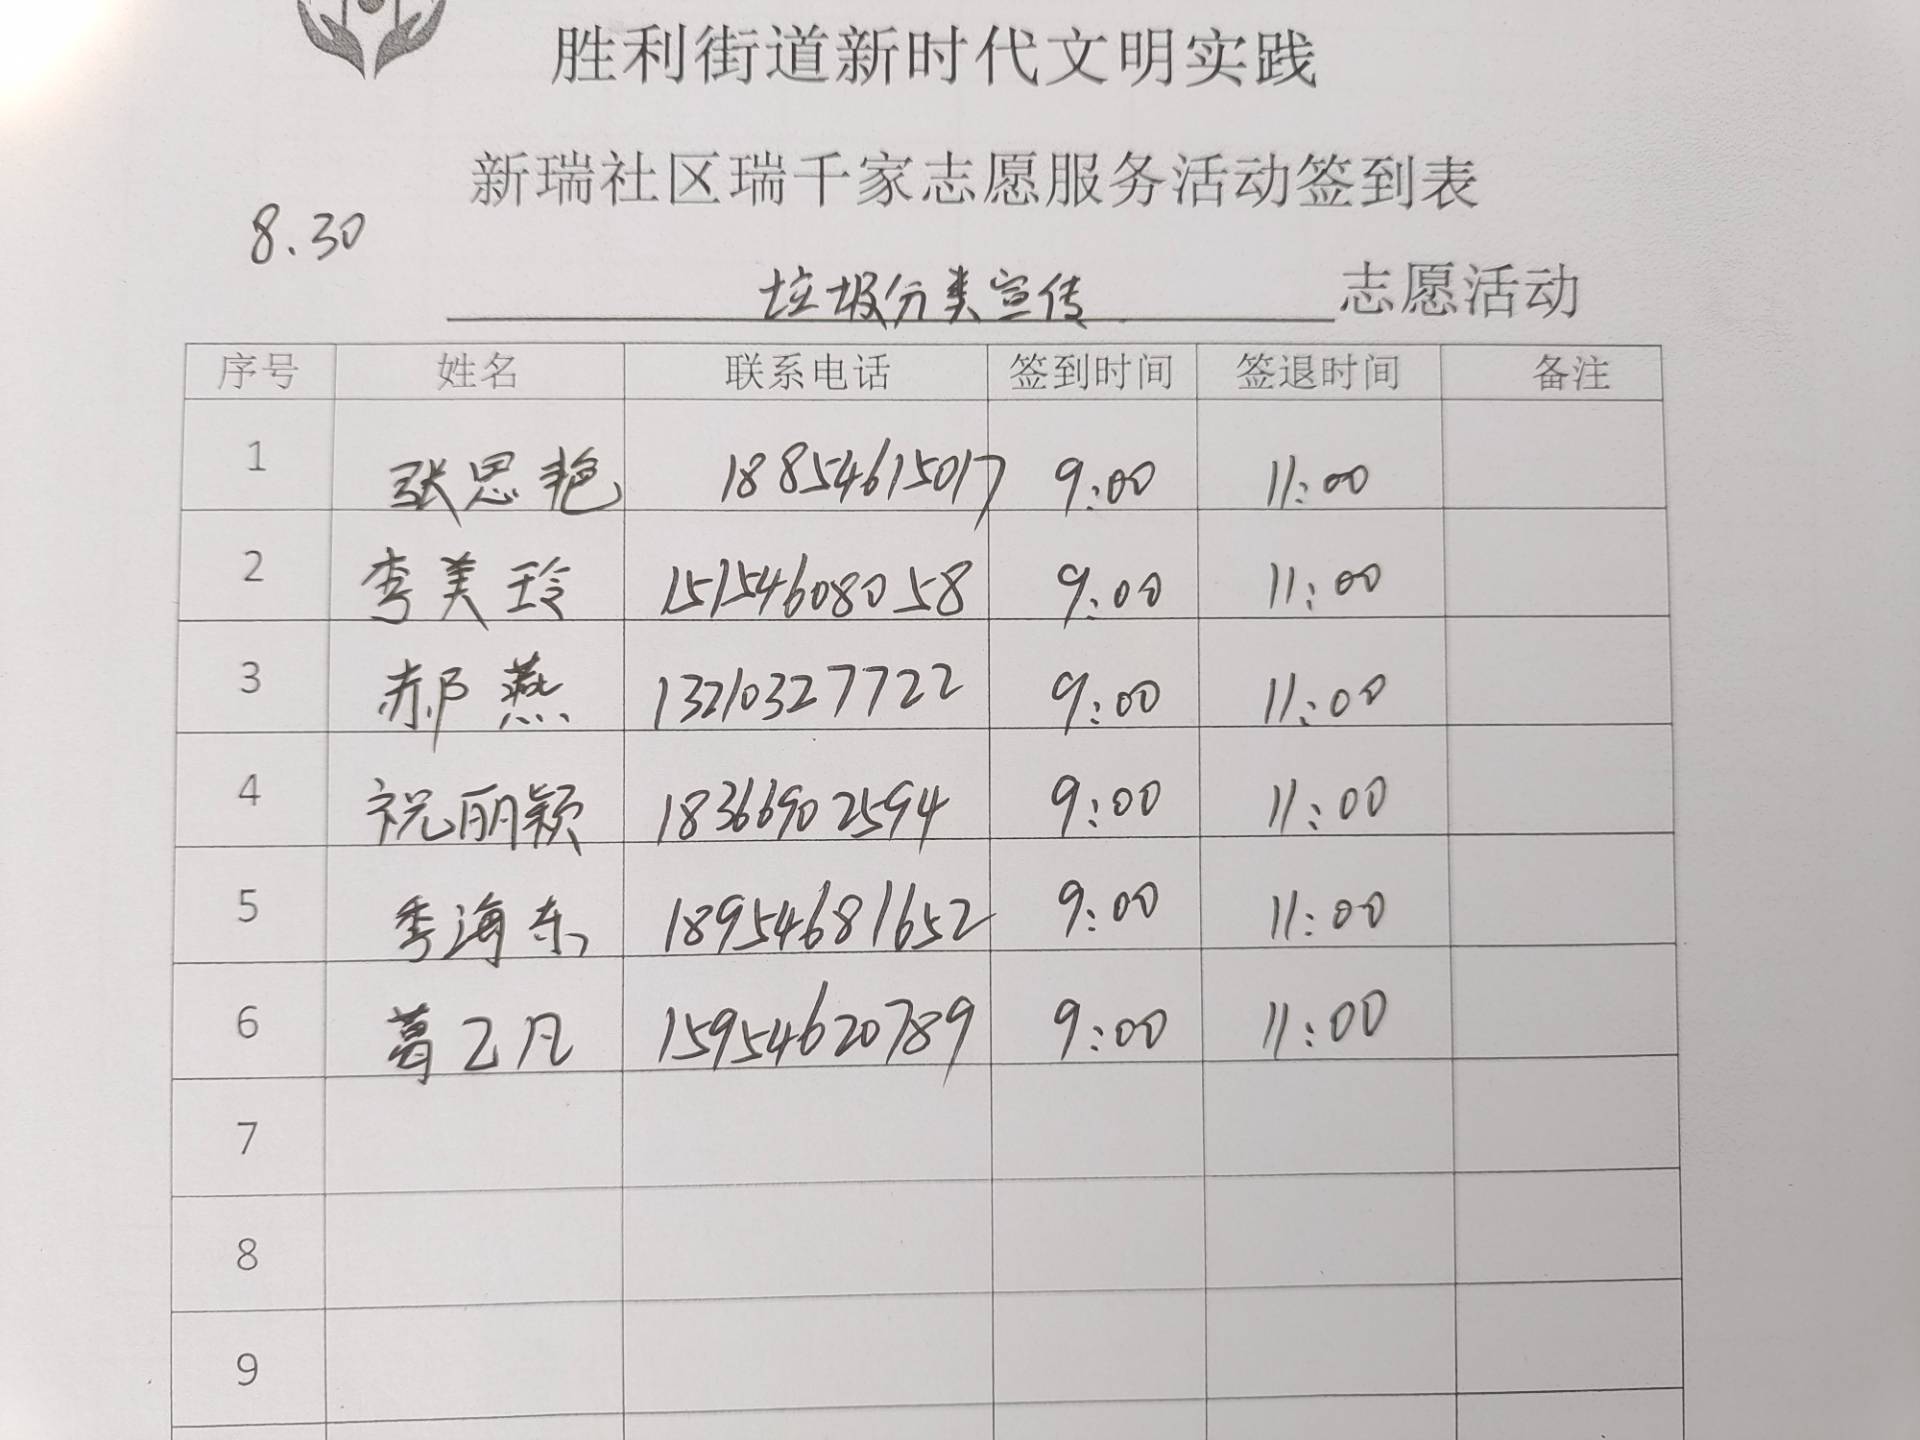 胜利街道新时代文明实践
新瑞社区瑞千家志愿服务活动签到表
8.30
垃圾分类宣传 志愿活动
序号 姓名 联系电话 签到时间 签退时间 备注
1 张思艳 18854615017 9:00 11:00
2 李美玲 15154608058 9:00 11:00
3 郝燕 13210327722 9:00 11:00
4 祝丽颖 18366902594 9:00 11:00
5 季海东 18954681652 9:00 11:00
6 葛乙凡 15954620789 9:00 11:00
7
8
9